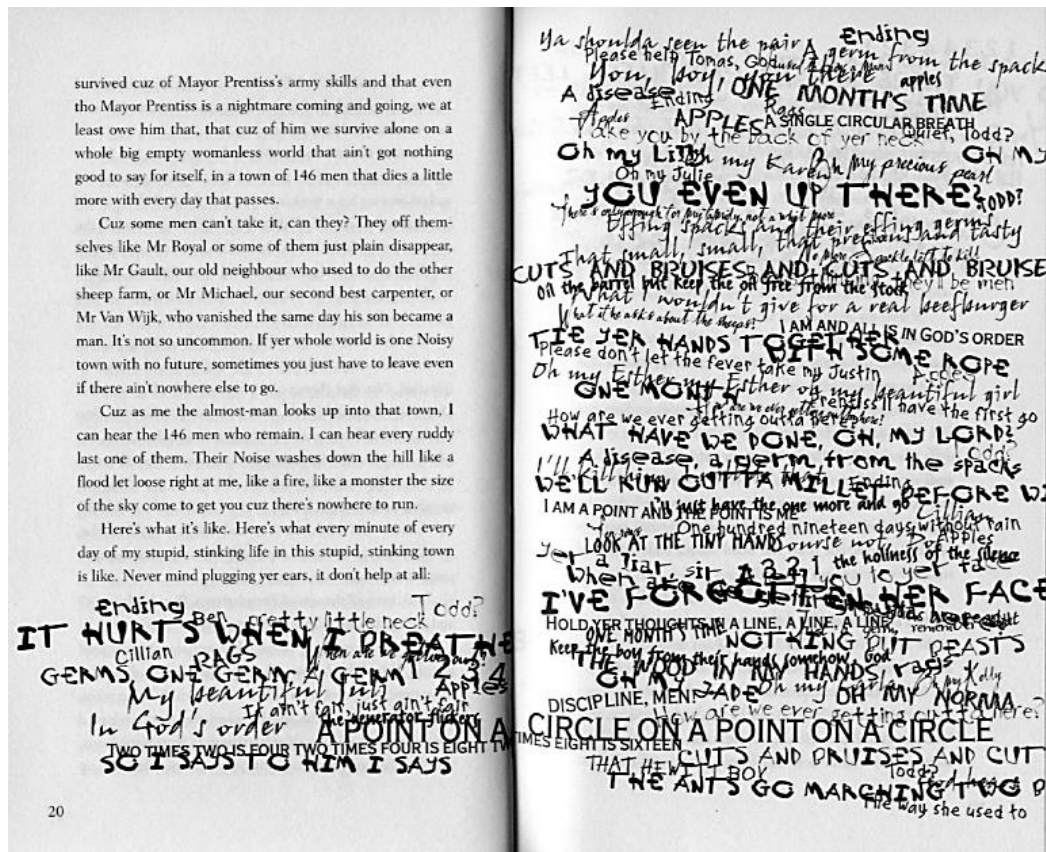 survived cuz of Mayor Prentiss's army skills and that even
tho Mayor Prentiss is a nightmare coming and going, we at
least owe him that, that cuz of him we survive alone on a
whole big empty womanless world that ain't got nothing
good to say for itself, in a town of 146 men that dies a little
more with every day that passes.
Cuz some men can't take it, can they? They off them-
selves like Mr Royal or some of them just plain disappear,
like Mr Gault, our old neighbour who used to do the other
sheep farm, or Mr Michael, our second best carpenter, or
Mr Van Wijk, who vanished the same day his son became a
man. It's not so uncommon. If yer whole world is one Noisy
town with no future, sometimes you just have to leave even
if there ain't nowhere else to go.
Cuz as me the almost-man looks up into that town, I
can hear the 146 men who remain. I can hear every ruddy
last one of them. Their Noise washes down the hill like a
flood let loose right at me, like a fire, like a monster the size
of the sky come to get you cuz there's nowhere to run.
Here's what it's like. Here's what every minute of every
day of my stupid, stinking life in this stupid, stinking town
is like. Never mind plugging yer ears, it don't help at all:
Ending
Todd?
Ben
pretty little neck
IT HURTS WHEN I BREATHE
Cillian
RAGS
GERMS, ONE GERM, A GERM 1 2 3 4
My beautiful Juli
Apples
It ain't fair, just ain't fair
In God's order
the generator flickers
A POINT ON A CIRCLE ON A POINT ON A CIRCLE
TWO TIMES TWO IS FOUR TWO TIMES FOUR IS EIGHT TWO TIMES EIGHT IS SIXTEEN
SO I SAYS TO HIM I SAYS
20
Ya shoulda seen the pair
Ending
Please help Tomas, God
A germ from the spack
You, boy, you there
apples
A disease
ONE MONTH'S TIME
Ending
Rags
Apples
APPLES
A SINGLE CIRCULAR BREATH
Take you by the back of yer neck
Quiet, Todd?
Oh my
Oh my Karen
Oh my precious pearl
OH MY
Oh my Julie
YOU EVEN UP THERE?
TODD?
Effing spacks and their effing germs
That small, small, that precious and tasty
CUTS AND BRUISES AND CUTS AND BRUISE
they'll be men
Oil the barrel but keep the oil free from the stock
What I wouldn't give for a real beefburger
What if he asks about the sheeps?
I AM AND ALL IS IN GOD'S ORDER
TIE YER HANDS TOGETHER WITH SOME ROPE
Please don't let the fever take my Justin
Oh my Esther my Esther oh my beautiful girl
ONE MONTH
Prentiss'll have the first go
How are we ever getting outta here
WHAT HAVE WE DONE, OH, MY LORD?
Todd?
A disease, a germ from the spacks
I'll kill him
Ending
WE'LL RUN OUTTA MILLET BEFORE WI
I'll just have the one more and go
Cillian
I AM A POINT AND THE POINT IS ME
One hundred nineteen days without rain
LOOK AT THE TINY HANDS
Course not
Apples
Yer a liar, sir
4 3 2 1
the hollness of the silence
to yer face
When are
I'VE FORGOTTEN HER FACE
HOLD YER THOUGHTS IN A LINE, A LINE, A LINE
ONE MONTH'S TIME
NOTHING BUT BEASTS
Keep the boy from their hands somehow, God
THE WOOD IN MY HANDS
rags
OH MY JADE
Oh my Kelly
DISCIPLINE, MEN
OH MY NORMA
How are we ever getting outta here?
CUTS AND BRUISES AND CUT
THAT HEWITT BOY
Todd?
THE ANTS GO MARCHING TWO B
The way she used to